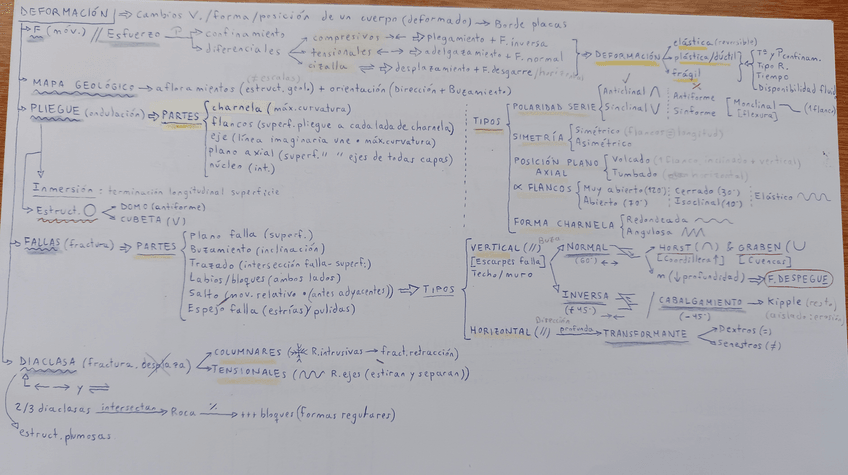 DEFORMACIÓN ⇒ Cambios V./forma/posición de un cuerpo (deformado) → Borde placas
F (móv.) // Esfuerzo → confinamiento
→ diferenciales
compresivos → ← ⇒ plegamiento + F. inversa
tensionales ← → ⇒ adelgazamiento + F. normal
cizalla ⇌ ⇒ desplazamiento + F. desgarre/horizontal
⇒ DEFORMACIÓN
elástica (reversible)
plástica/dúctil
frágil
Tª y P confinam.
Tipo R.
Tiempo
Disponibilidad fluid
MAPA GEOLÓGICO → afloramientos (estruct. geol.) + orientación (Dirección + Buzamiento)
PLIEGUE (ondulación) ⇒ PARTES
charnela (máx. curvatura)
flancos (superf. pliegue a cada lado de charnela)
eje (línea imaginaria une • máx. curvatura)
plano axial (superf. " " ejes de todas capas)
núcleo (int.)
TIPOS
POLARIDAD SERIE
Anticlinal
Sinclinal
Antiforme
Sinforme
Monoclinal (1 flanco)
[flexura]
SIMETRÍA
Simétrico
Asimétrico
POSICIÓN PLANO AXIAL
Volcado
Tumbado
∝ FLANCOS
Muy abierto (120°)
Abierto (70°)
Cerrado (30°)
Isoclinal (10°)
Elástico
FORMA CHARNELA
Redondeada
Angulosa
Inmersión: terminación longitudinal superficie
Estruct. O
DOMO (antiforme)
CUBETA (V)
FALLAS (fractura) ⇒ PARTES
Plano falla (superf.)
Buzamiento (inclinación)
Trazado (intersección falla-superf.)
Labios/bloques (ambos lados)
Salto (mov. relativo • (antes adyacentes))
Espejo falla (estrías/pulidas)
⇒ TIPOS
VERTICAL (//)
[Escarpes falla]
Techo/muro
Buza
NORMAL
(60°) ← →
HORST (∩) & GRABEN (U)
[Cordillera ↑] [Cuencas]
m (↓ profundidad) ⇒ F. DESPEGUE
INVERSA
(+45°) → ←
/ CABALGAMIENTO → Klipple (resto
(-45°) aislado erosión)
HORIZONTAL (//) Dirección profunda → TRANSFORMANTE
Dextros (=)
Senestros (≠)
DIACLASA (fractura, desplaza)
COLUMNARES (R. intrusivas → fract. retracción)
TENSIONALES (R. ejes (estiran y separan))
← → y ⇌
2/3 diaclasas intersectan → Roca % → +++ bloques (formas regulares)
estruct. plumosas